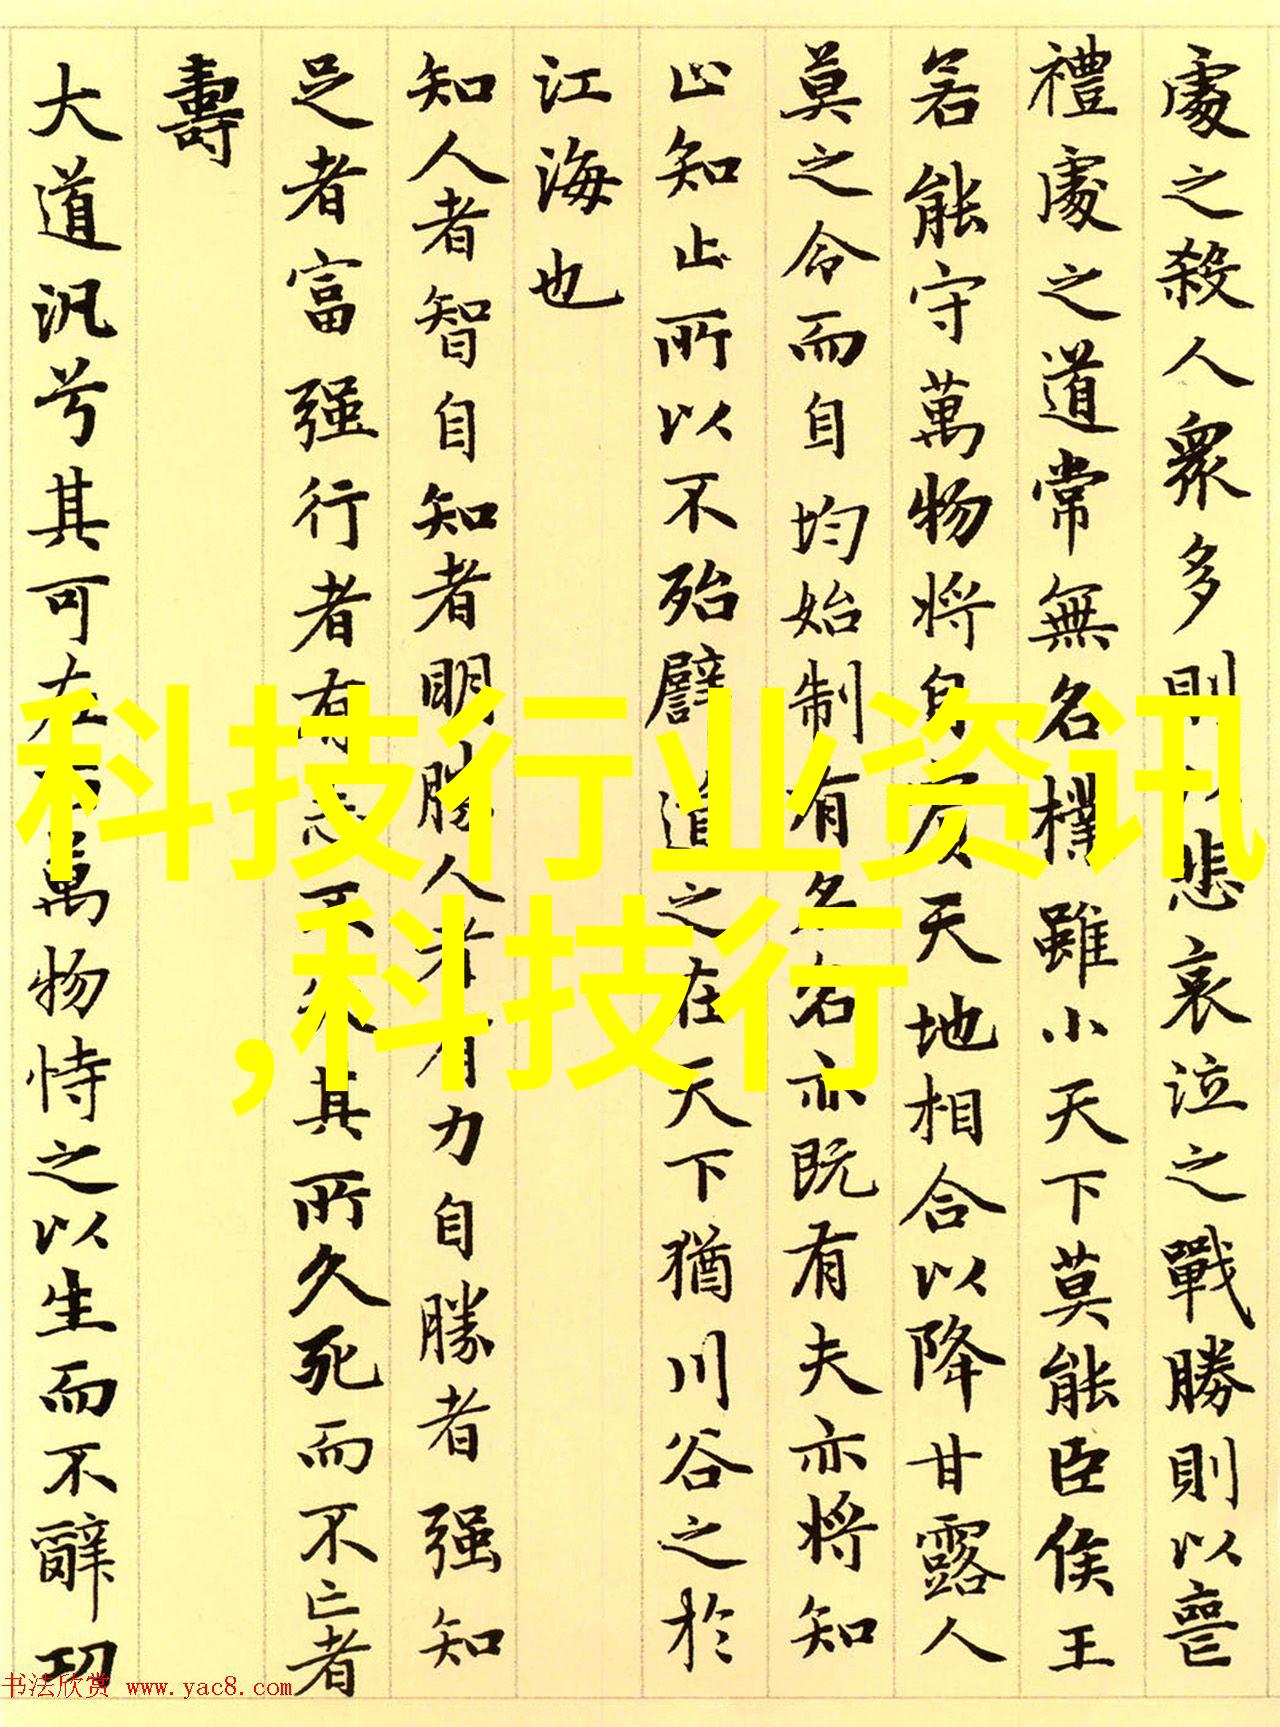 處之殺人衆多則以悲哀泣之戰勝則以喪
禮處之道常無名樸雖小天下莫能臣侯王
若能守萬物將自賓天地相合以降甘露人
莫之令而自均始制有名名亦既有夫亦将知
止知止所以不殆譬道之在天下猶川谷之於
江海也
知人者智自知者明勝人者有力自勝者强知
足者富强行者有志不失其所久死而不亡者
壽
大道汎兮其可左右萬物恃之以生而不辭功
科技行业资讯
,科技行
书法欣赏 www.yac8.com